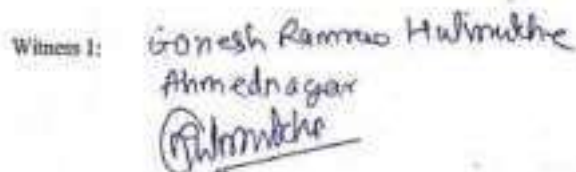 Witness 1: Ganesh Ramrao Hulmukhe
Ahmednagar